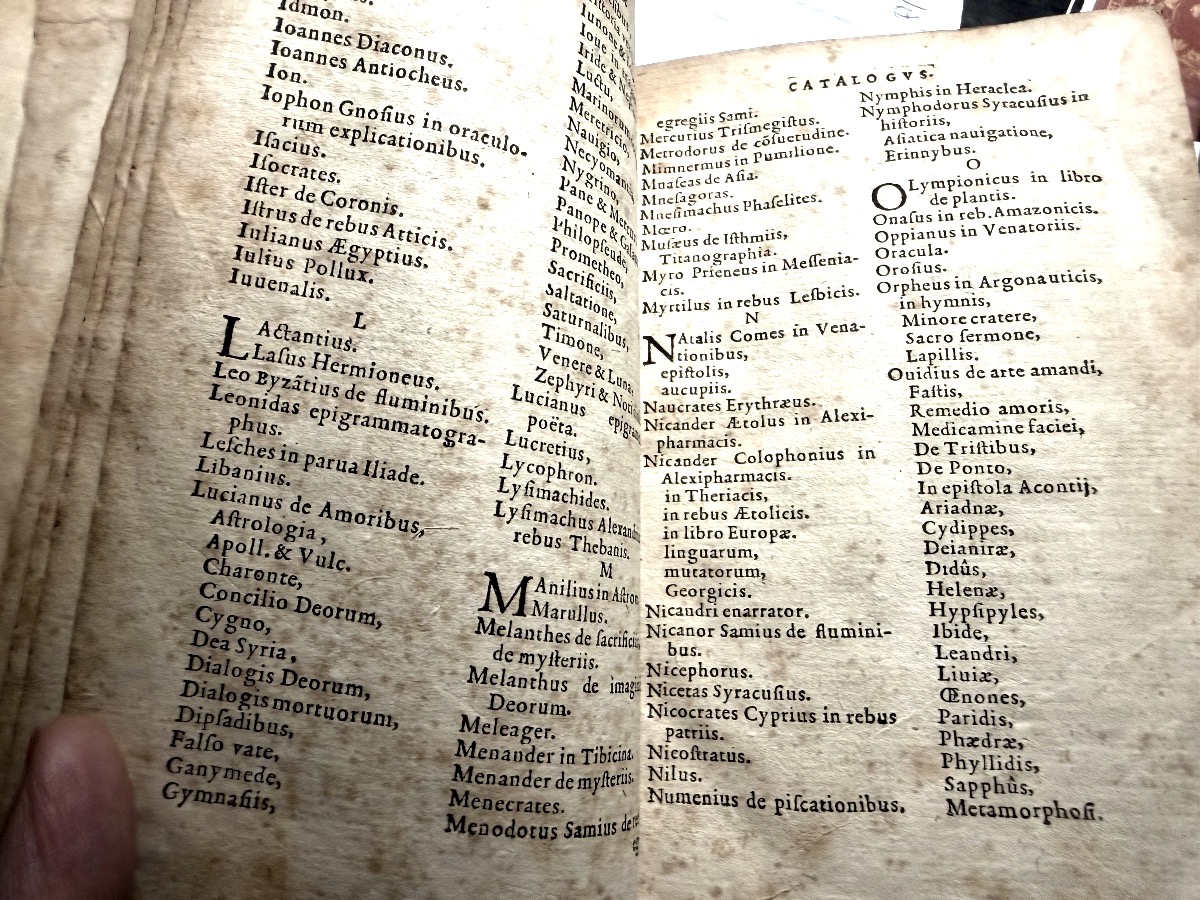 Idmon.
Ioannes Diaconus.
Ioannes Antiocheus.
Ion.
Iophon Gnoſius in oraculo-
rum explicationibus.
Iſacius.
Iſocrates.
Iſter de Coronis.
Iſtrus de rebus Atticis.
Iulianus Ægyptius.
Iulius Pollux.
Iuuenalis.
L
LActantius.
Laſus Hermioneus.
Leo Byzãtius de fluminibus.
Leonidas epigrammatogra-
phus.
Leſches in parua Iliade.
Libanius.
Lucianus de Amoribus,
Aſtrologia,
Apoll. & Vulc.
Charonte,
Concilio Deorum,
Cygno,
Dea Syria,
Dialogis Deorum,
Dialogis mortuorum,
Dipſadibus,
Falſo vate,
Ganymede,
Gymnaſiis,
Ioue
Iride &
Luctu,
Marinorum
Meretricio,
Nauigio,
Necyomantia
Nygrino,
Pane & Mercu
Panope & Gala
Philopſeude,
Prometheo,
Sacrificiis,
Saltatione,
Saturnalibus,
Timone,
Venere & Luna,
Zephyri & Noti
Lucianus epigram
poëta.
Lucretius,
Lycophron.
Lyſimachides.
Lyſimachus Alexand
rebus Thebanis.
M
MAnilius in Aſtron
Marullus.
Melanthes de ſacrificiis,
de myſteriis.
Melanthus de imagi
Deorum.
Meleager.
Menander in Tibicina.
Menander de myſteriis.
Menecrates.
Menodotus Samius de re
CATALOGVS.
egregiis Sami.
Mercurius Triſmegiſtus.
Metrodorus de cõſuetudine.
Mimnermus in Pumilione.
Mnaſeas de Aſia.
Mneſagoras.
Mneſimachus Phaſelites.
Mœro.
Muſæus de Iſthmiis,
Titanographia.
Myro Prieneus in Meſſenia-
cis.
Myrtilus in rebus Leſbicis.
N
NAtalis Comes in Vena-
tionibus,
epiſtolis,
aucupiis.
Naucrates Erythræus.
Nicander Ætolus in Alexi-
pharmacis.
Nicander Colophonius in
Alexipharmacis.
in Theriacis,
in rebus Ætolicis.
in libro Europæ.
linguarum,
mutatorum,
Georgicis.
Nicandri enarrator.
Nicanor Samius de flumini-
bus.
Nicephorus.
Nicetas Syracuſius.
Nicocrates Cyprius in rebus
patriis.
Nicoſtratus.
Nilus.
Numenius de piſcationibus.
Nymphis in Heraclea.
Nymphodorus Syracuſius in
hiſtoriis,
Aſiatica nauigatione,
Erinnybus.
O
OLympionicus in libro
de plantis.
Onaſus in reb. Amazonicis.
Oppianus in Venatoriis.
Oracula.
Oroſius.
Orpheus in Argonauticis,
in hymnis,
Minore cratere,
Sacro ſermone,
Lapillis.
Ouidius de arte amandi,
Faſtis,
Remedio amoris,
Medicamine faciei,
De Triſtibus,
De Ponto,
In epiſtola Acontij,
Ariadnæ,
Cydippes,
Deianiræ,
Didûs,
Helenæ,
Hypſipyles,
Ibide,
Leandri,
Liuiæ,
Œnones,
Paridis,
Phædræ,
Phyllidis,
Sapphûs,
Metamorphoſi.